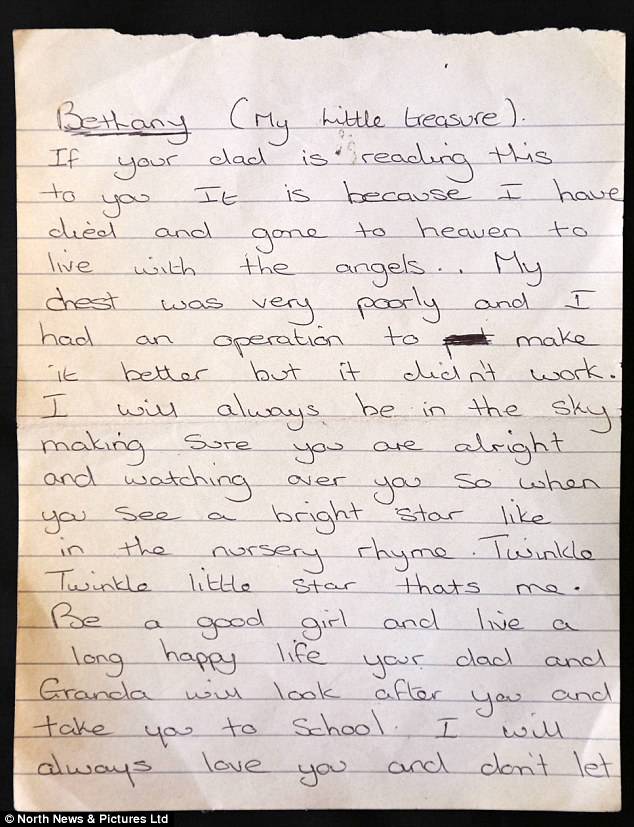 Bethany (My little treasure).
If your dad is reading this
to you It is because I have
died and gone to heaven to
live with the angels... My
chest was very poorly and I
had an operation to make
it better but it didn't work.
I will always be in the sky
making sure you are alright
and watching over you so when
you see a bright star like
in the nursery rhyme. Twinkle
Twinkle little star thats me.
Be a good girl and live a
long happy life your dad and
Granda will look after you and
take you to School. I will
always love you and don't let
© North News & Pictures Ltd